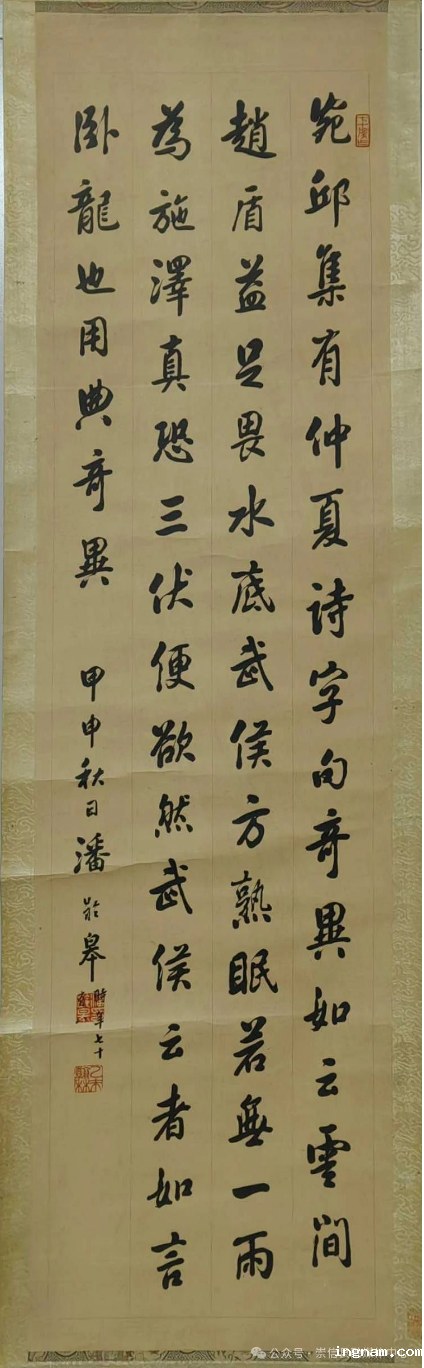 宛邱集有仲夏詩字句奇異如云雲間
趙盾益足畏水底武侯方熟眠若無一雨
為施澤真恐三伏便欲然武侯云者如言
卧龍也用典奇異
甲申秋日潘齡皋時年七十
公众号·崇信
ingnam.com